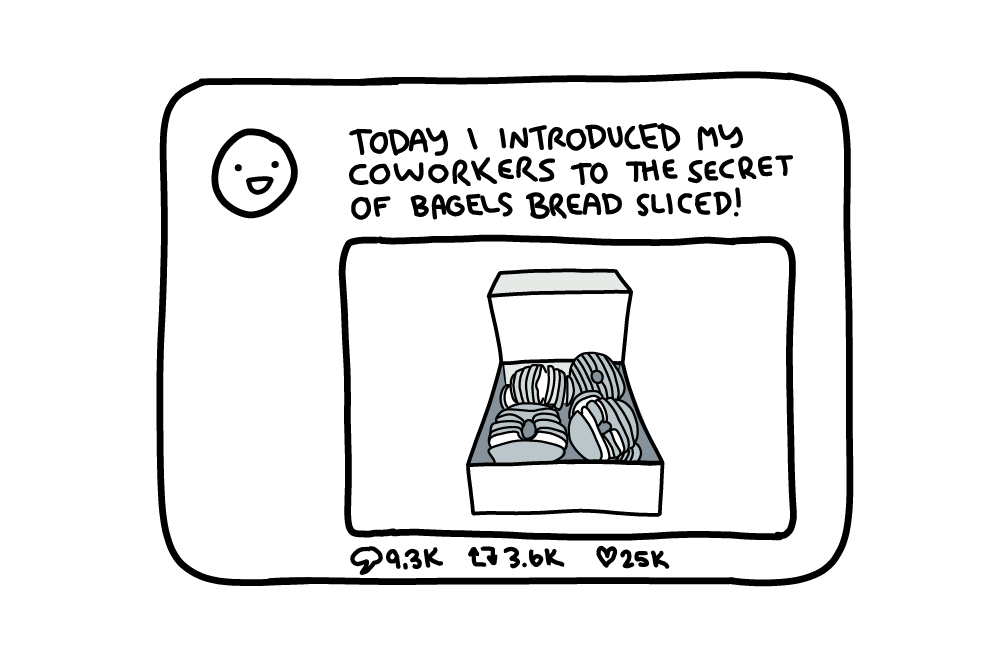 TODAY I INTRODUCED MY
COWORKERS TO THE SECRET
OF BAGELS BREAD SLICED!
9.3K 3.6K 25K